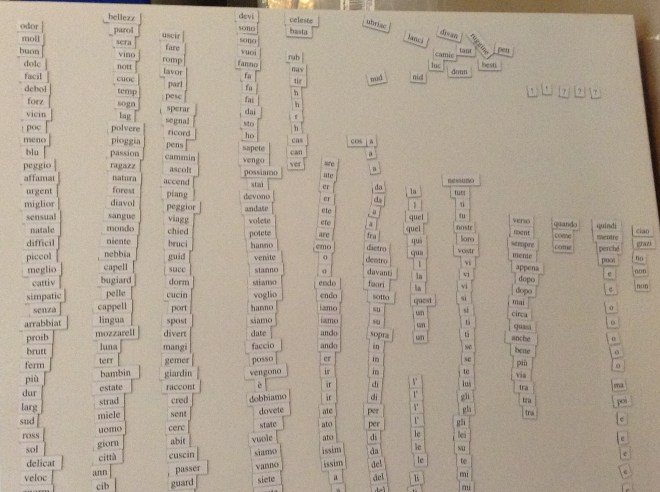 odor
moll
buon
dolc
facil
debol
forz
vicin
poc
meno
blu
peggio
affamat
urgent
miglior
sensual
natale
difficil
piccol
meglio
cattiv
simpatic
senza
arrabbiat
proib
brutt
ferm
più
dur
larg
sud
ross
sol
delicat
veloc
bellezz
parol
sera
vino
nott
cuoc
temp
sogn
lag
polvere
pioggia
passion
ragazz
natura
forest
diavol
sangue
mondo
niente
nebbia
capell
bugiard
pelle
cappell
lingua
mozzarell
luna
terr
bambin
estate
strad
miele
uomo
giorn
città
ann
cib
uscir
fare
romp
lavor
parl
pesc
sperar
segnal
ricord
pens
cammin
ascolt
accend
piang
peggior
viagg
chied
bruci
guid
succ
dorm
cucin
port
spost
divert
mangi
gemer
giardin
raccont
cred
sent
cerc
abit
cuscin
passer
guard
devi
sono
sono
vuoi
fanno
fa
fa
fai
dai
sto
ho
sapete
vengo
possiamo
stai
devono
andate
volete
potete
hanno
venite
stanno
stiamo
voglio
hanno
siamo
date
faccio
posso
vengono
è
dobbiamo
dovete
state
vuole
siamo
vanno
siete
celeste
basta
rub
nav
tir
h
h
r
h
cas
can
ver
are
ate
er
er
ete
are
emo
o
o
endo
endo
iamo
iamo
ando
ando
er
ir
ir
ir
ate
ato
ato
issim
issim
a
ubriac
nud
cos
a
a
a
da
da
a
a
fra
dietro
dentro
davanti
fuori
sotto
su
su
sopra
in
in
di
di
per
per
di
da
del
del
lanci
divan
ragazze
tant
pen
carne
luc
donn
besti
nid
la
l
quel
quel
qui
qua
l
la
la
quest
un
un
un
l'
l'
l'
l'
le
le
le
li
nessuno
tutt
ti
tu
nostr
loro
vostr
vi
vi
vi
si
si
ti
ti
se
se
te
lui
gli
gli
gli
lei
su
te
mi
mi
verso
ment
sempre
mente
appena
dopo
dopo
mai
circa
quasi
anche
bene
più
via
tra
tra
tra
quando
come
come
quindi
mentre
perché
puoi
e
e
o
o
o
o
o
ma
poi
e
e
e
ciao
grazi
no
non
non